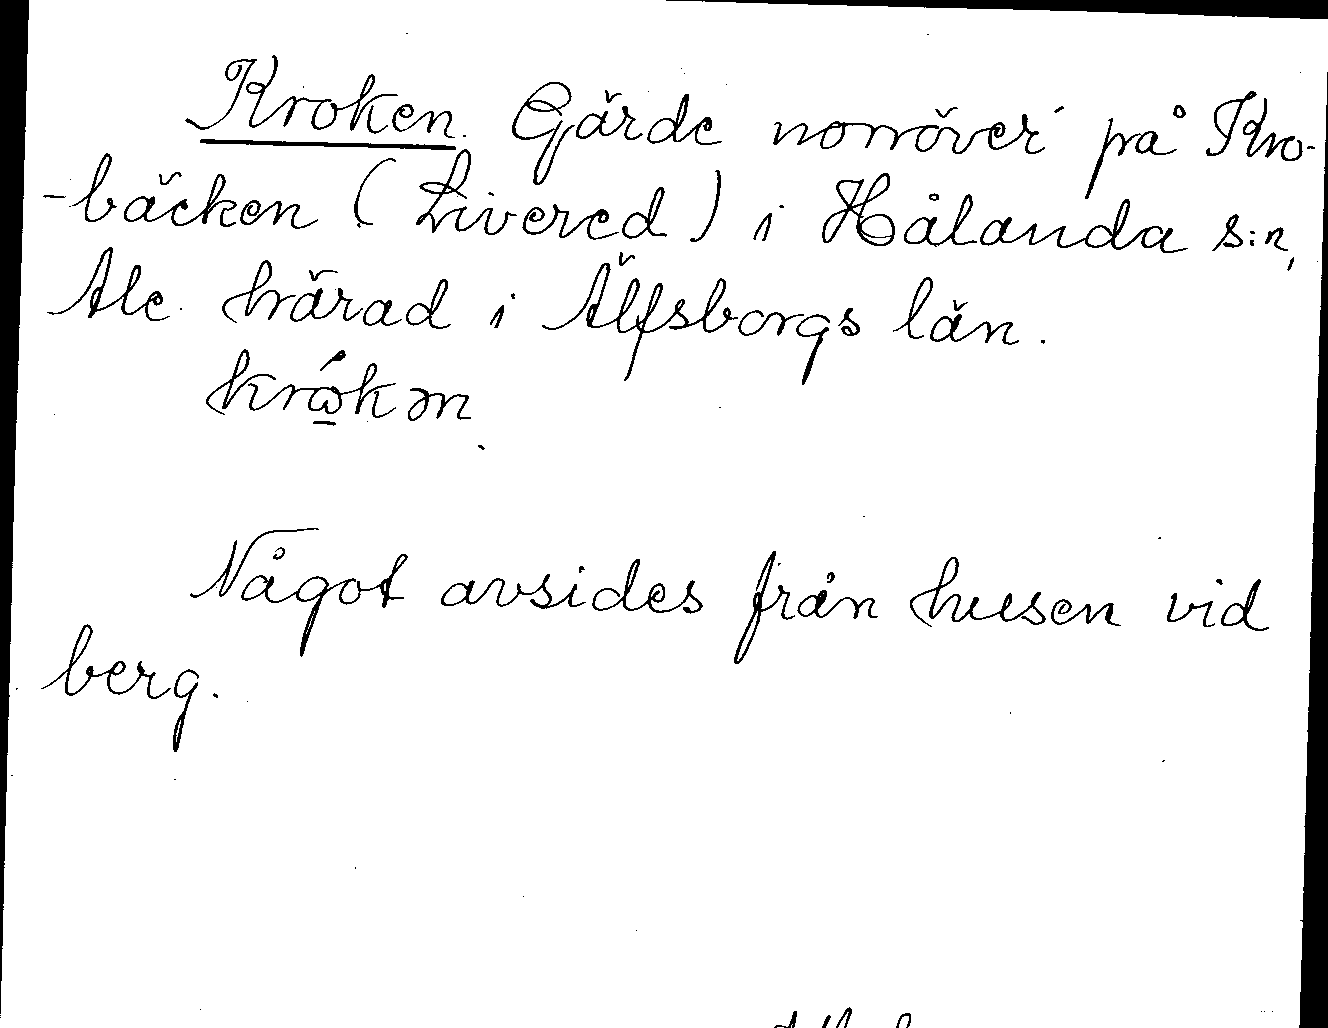 Kroken. Gärde norröver på Kro-
-bäcken (Livered) i Hålanda s:n,
Ale härad i Älfsborgs län.
krώ̲kən
Något avsides från husen vid
berg.